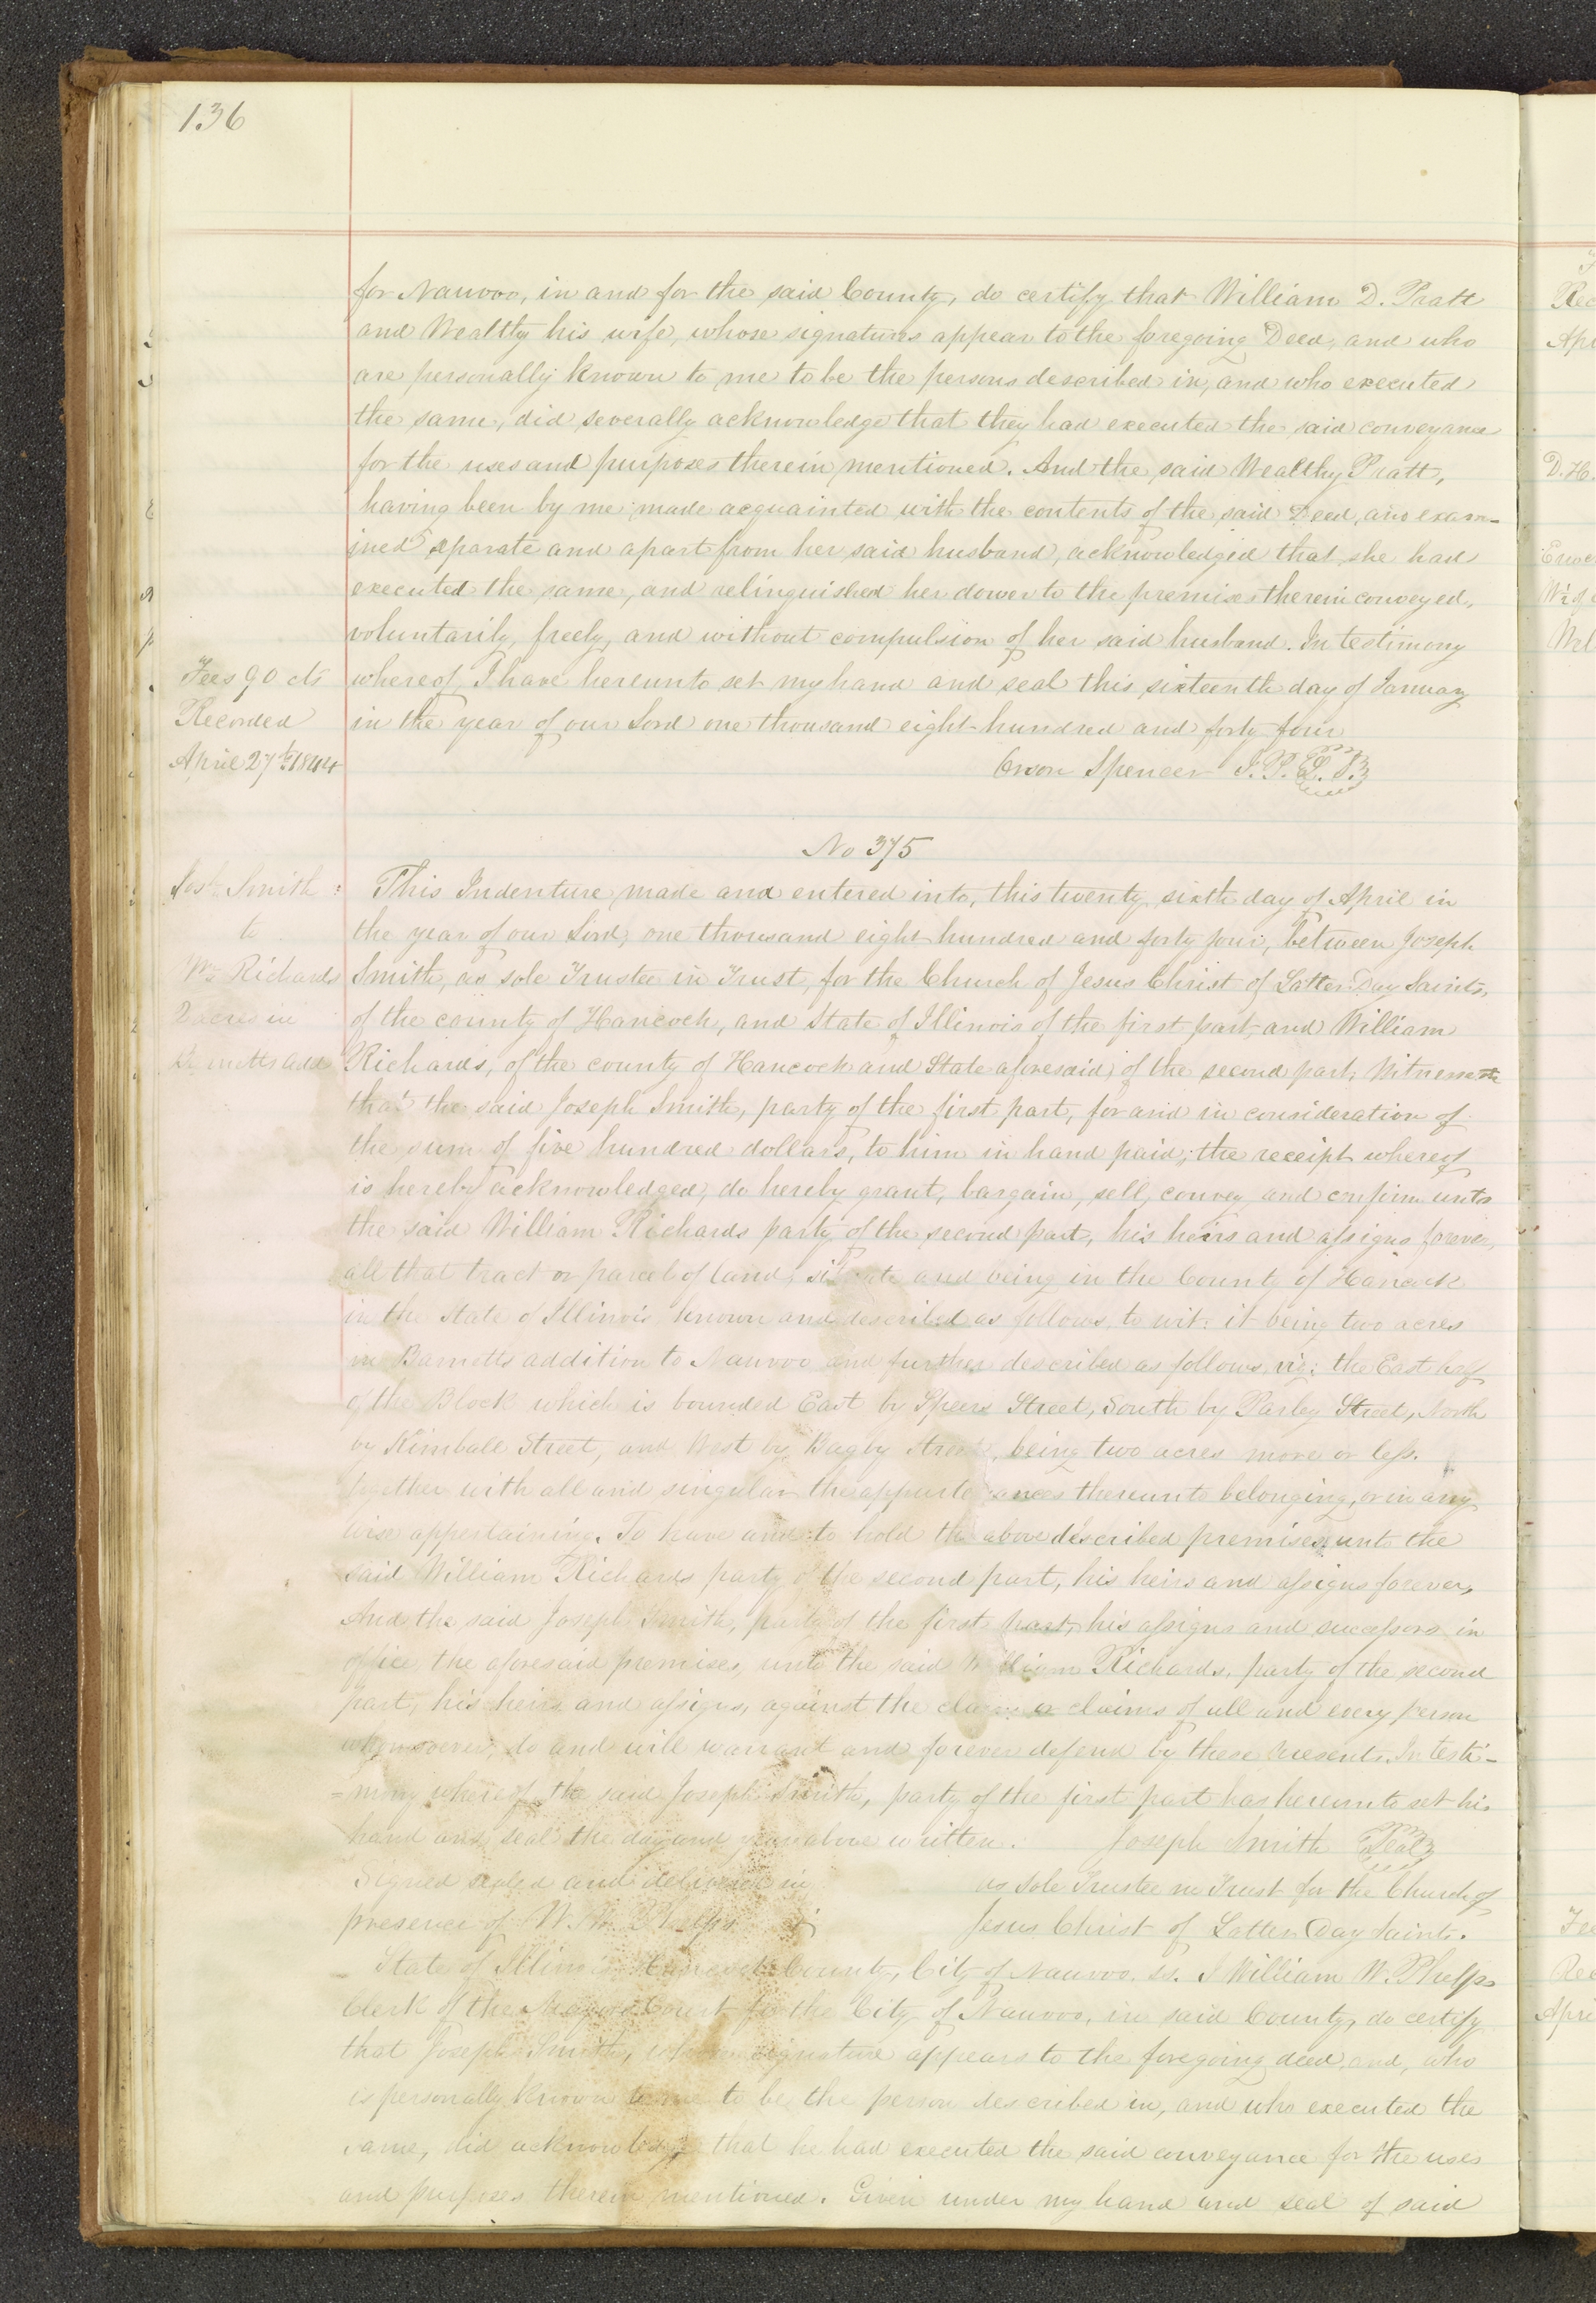 136
for Nauvoo, in and for the said County, do certify that William D. Pratt
and Wealthy his wife, whose signatures appear to the foregoing Deed, and who
are personally known to me to be the persons described in, and who executed
the same, did severally acknowledge that they had executed the said conveyance
for the uses and purposes therein mentioned. And the said Wealthy Pratt,
having been by me made acquainted with the contents of the said Deed, and exam-
ined separate and apart from her said husband, acknowledged that she had
executed the same, and relinquished her dower to the premises therein conveyed,
voluntarily, freely, and without compulsion of her said husband. In testimony
whereof, I have hereunto set my hand and seal this sixteenth day of January
in the year of our Lord one thousand eight hundred and forty four
Fees 90 cts
Recorded
April 27th 1844
Orson Spencer J.P. L.S.
No 375
Josh Smith
to
Wm Richards
2 acres in
Barnetts add
This Indenture made and entered into, this twenty sixth day of April in
the year of our Lord, one thousand eight hundred and forty four, between Joseph
Smith, as sole Trustee in Trust, for the Church of Jesus Christ of Latter Day Saints,
of the county of Hancock, and State of Illinois of the first part, and William
Richards, of the county of Hancock and State aforesaid, of the second part, Witnesseth
that the said Joseph Smith, party of the first part, for and in consideration of
the sum of five hundred dollars, to him in hand paid; the receipt whereof
is hereby acknowledged, do hereby grant, bargain, sell, convey and confirm unto
the said William Richards party of the second part, his heirs and assigns forever,
all that tract or parcel of land, situate and being in the County of Hancock
in the State of Illinois known and described as follows, to wit: it being two acres
in Barnetts addition to Nauvoo and further described as follows, viz: the East half
of the Block which is bounded East by Spears Street, South by Parley Street, North
by Kimball Street, and West by Bagby Street, being two acres more or less.
Together with all and singular the appurtenances thereunto belonging, or in any
wise appertaining. To have and to hold the above described premises, unto the
said William Richards party of the second part, his heirs and assigns forever,
And the said Joseph Smith, party of the first part, his assigns and successors in
office, the aforesaid premises, unto the said William Richards, party of the second
part, his heirs and assigns, against the claim or claims of all and every person
whomsoever, do and will warrant and forever defend by these presents. In testi-
=mony whereof the said Joseph Smith, party of the first part has hereunto set his
hand and seal the day and year above written. Joseph Smith Seal
Signed sealed and delivered in as Sole Trustee in Trust for the Church of
presence of W. W. Phelps Jesus Christ of Latter Day Saints.
State of Illinois Hancock County, City of Nauvoo. ss. I William W. Phelps
Clerk of the Mayors Court for the City of Nauvoo, in said County, do certify
that Joseph Smith, whose signature appears to the foregoing deed, and, who
is personally known to me to be the person described in, and who executed the
same, did acknowledge that he had executed the said conveyance for the uses
and purposes therein mentioned. Given under my hand and seal of said